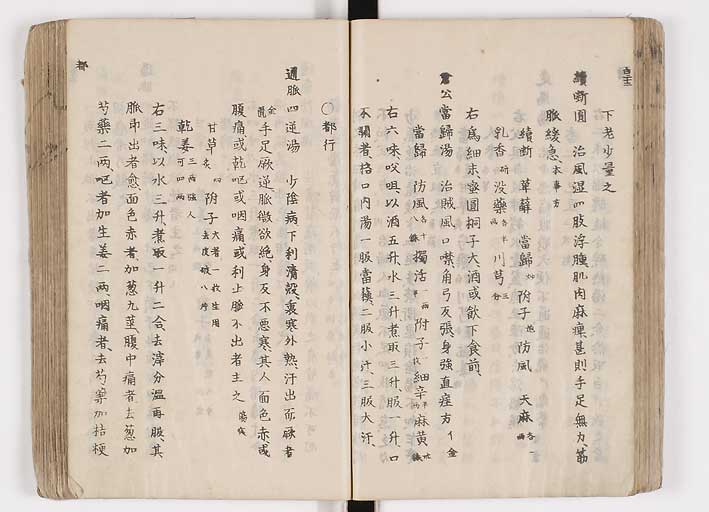 下老少量之
續斷圓 治風湿四肢浮腫肌肉麻痺甚則手足無力筋
脈緩急 本事方
續斷 萆薢 當歸 附子 防風 天麻 各一
乳香 研 没藥 川芎
右為細末蜜圓梧子大酒或飲下食前
倉公當歸湯 治賊風口噤角弓反張身強直痙方 千金
當歸 防風 獨活 附子 細辛 麻黄
右六味㕮咀以酒五升水三升煮取三升服一升口
不開者格口内湯一服當蘓二服小汗三服大汗
〇都行
通脈四逆湯 少陰病下利清穀裏寒外熱汗出而厥者
手足厥逆脈微欲絶身反不悪寒其人面色赤或
腹痛或乾嘔或咽痛或利止脈不出者主之 傷寒
甘草 炙 附子 大者一枚生用去皮破八片
乾姜 三両強人可四両
右三味以水三升煮取一升二合去滓分温再服其
脈即出者愈面色赤者加葱九莖腹中痛者去葱加
芍藥二両嘔者加生姜二両咽痛者去芍藥加桔梗
都